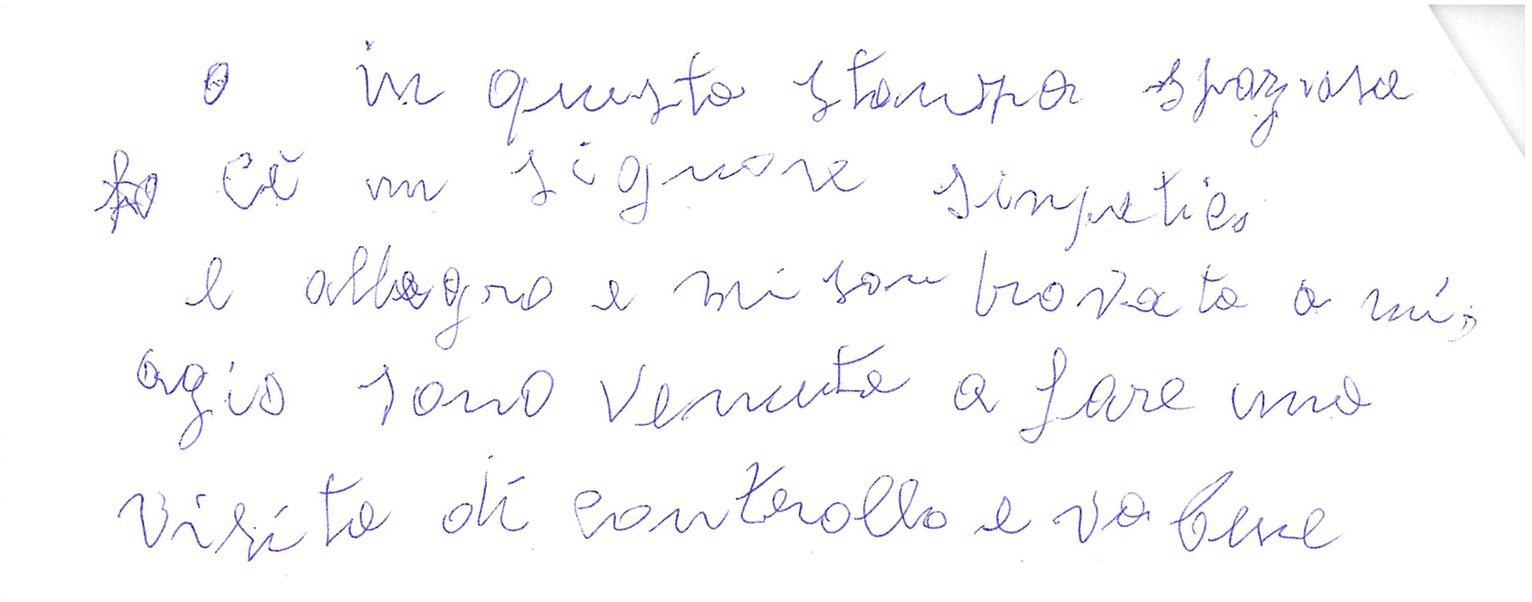 o in questa stanpa spaziosa
C'è un signore sinpatico
e allegro e mi son trovata a mi,
agio sono venuta a fare una
visita di controllo e va bene